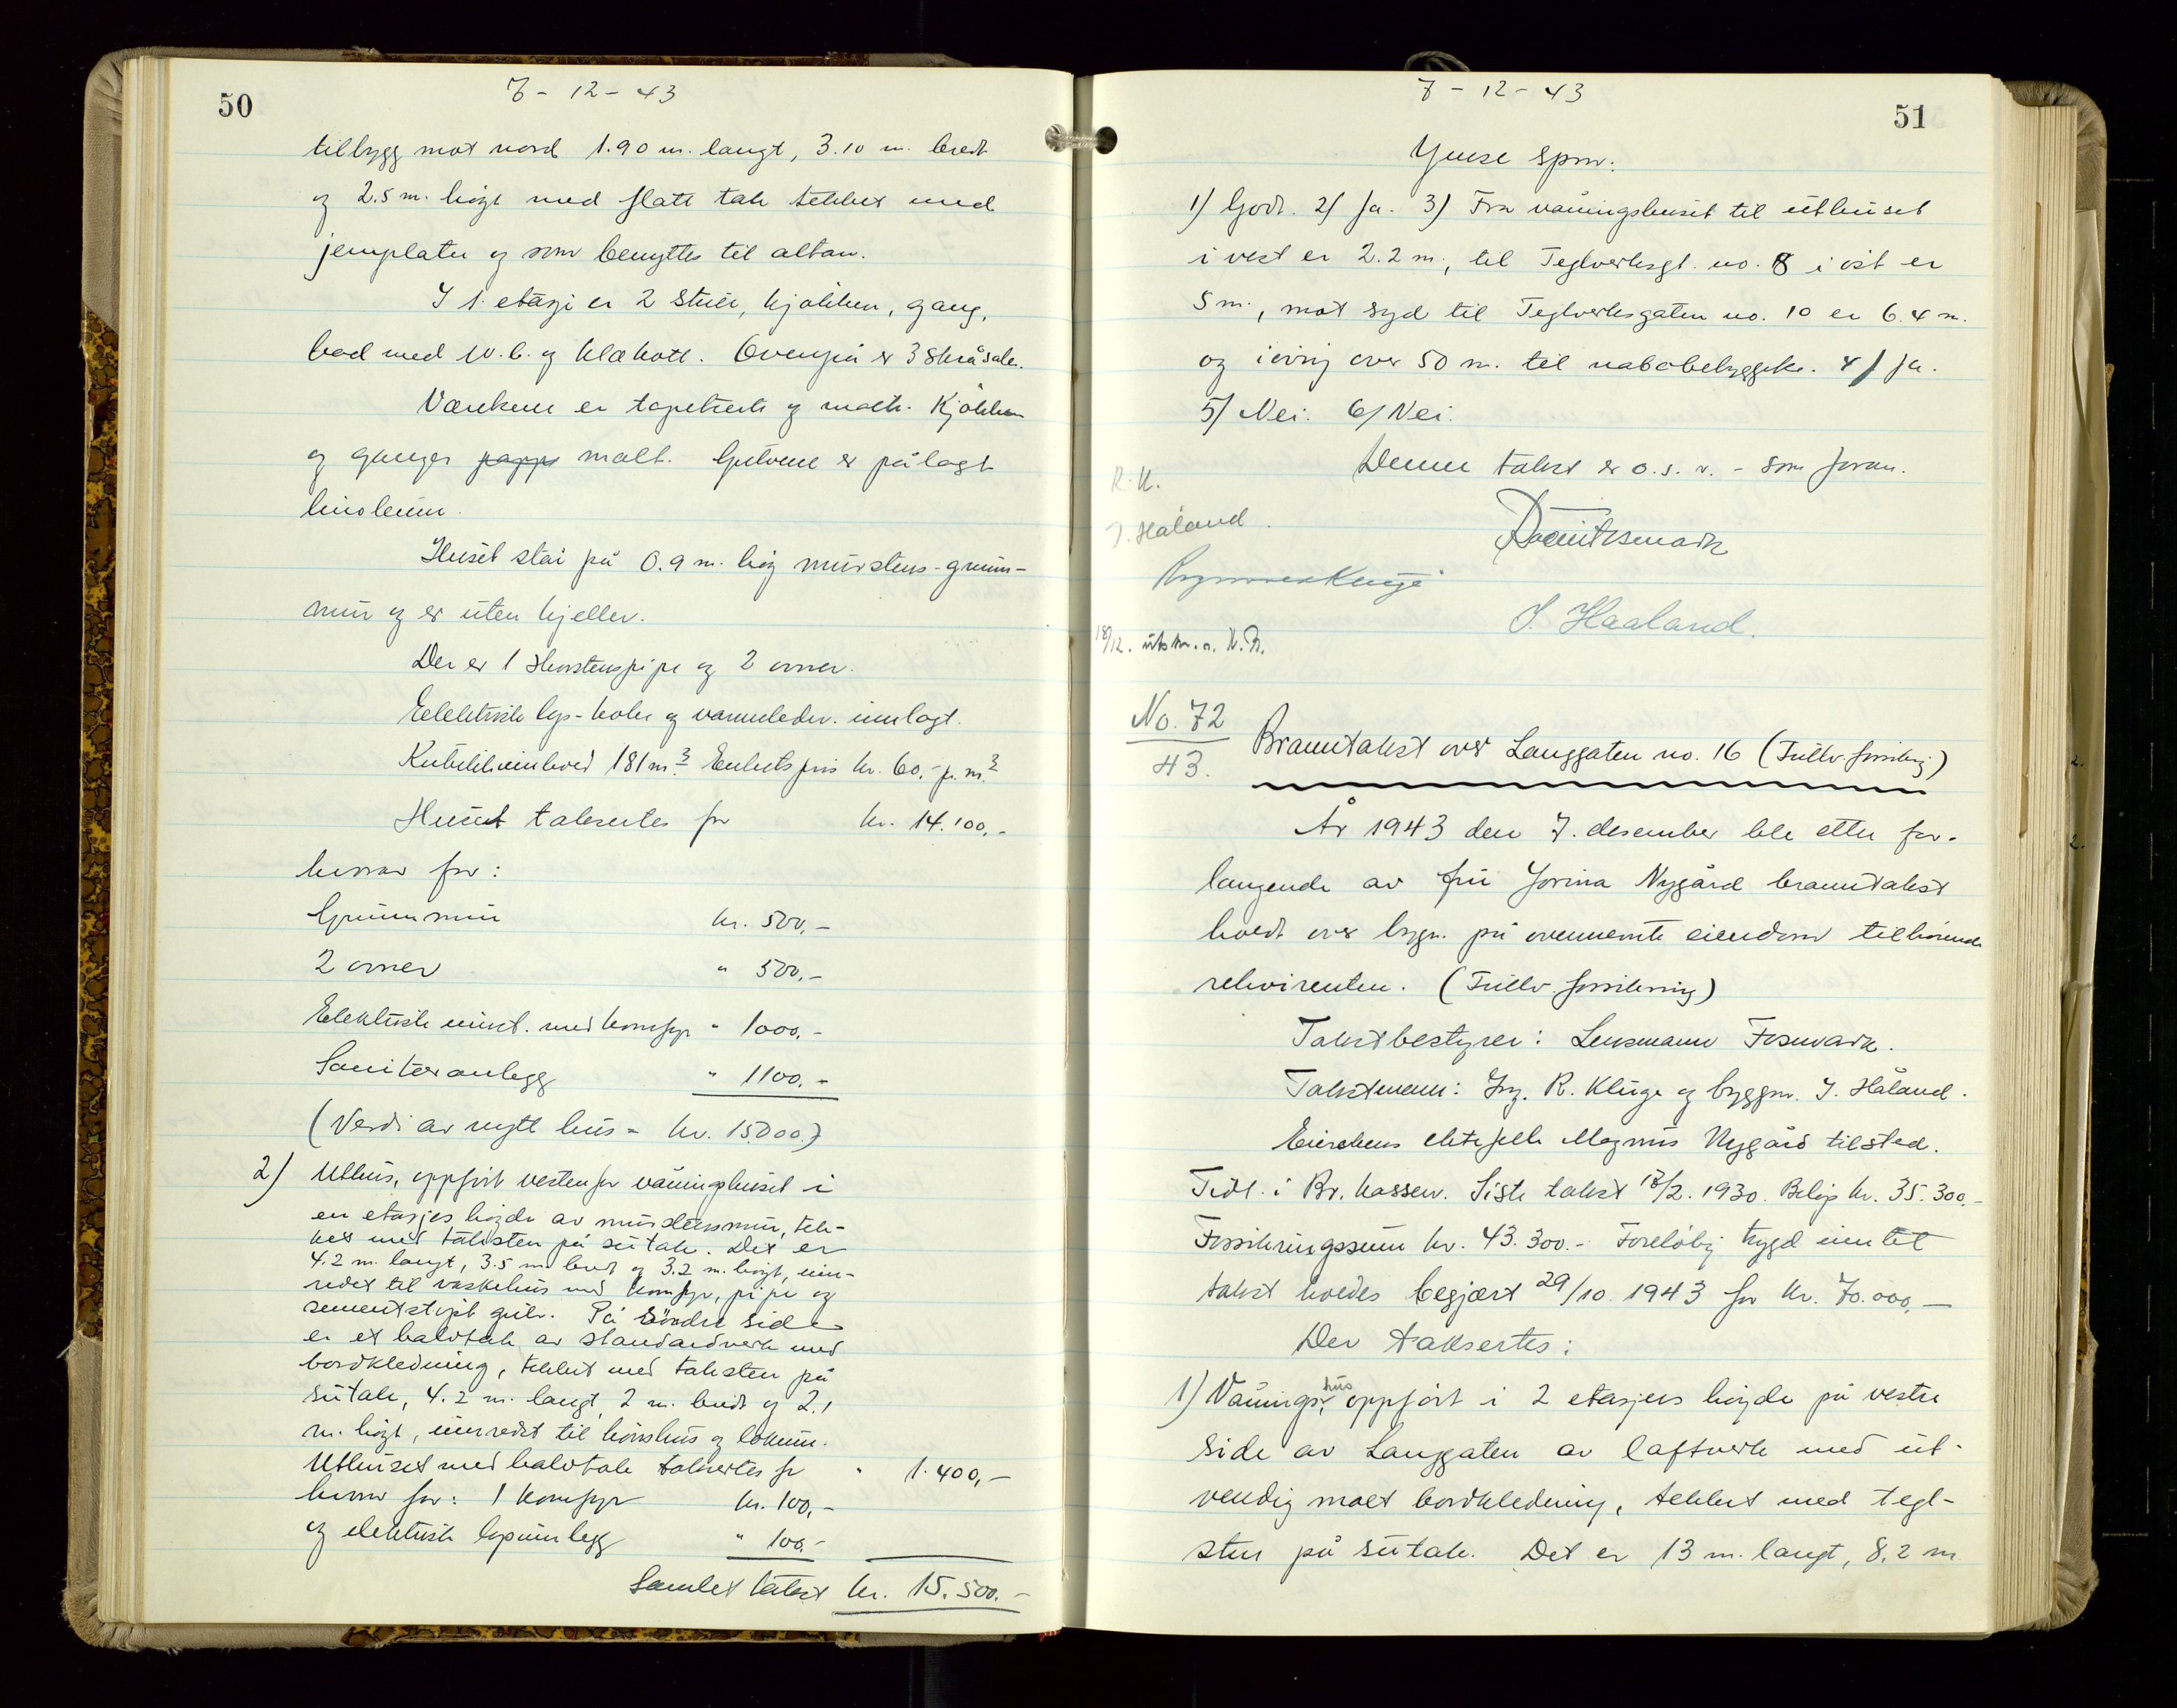 50
7 - 12 - 43
tilbygg mot nord 1.90 m. langt, 3.10 m. bredt
og 2.5 m. høgt med flatt tak tekket med
jernplater og som benyttes til altan.
I 1. etasje er 2 stuer, kjøkken, gang,
bad med W.C. og klækott. Ovenpå er 3 skråsaler.
Værelsene er tapetserte og malte. Kjøkken
og ganger papp malt. Gulvene er pålagt
linoleum.
Huset står på 0.9 m. høg murstens-grunn-
mur og er uten kjeller.
Der er 1 skorstenspipe og 2 ovner.
Eelektriske lys- koke og varmeledn. innlagt.
Kubikkinnhold 181 m.3 Enhetspris kr. 60,- p. m.3
Huset takseres for kr. 14.100,-
herav for:
Grunnmur kr. 500,-
2 ovner " 500,-
Elektriske innst. med komfyr " 1000,-
Saniteranlegg " 1100,-
(Verdi av nytt hus = kr. 15.000,-)
2) Uthus, oppført vestenfor våningshuset i
en etasjes høyde av murstensmur, tek-
ket med taksten på sutak. Det er
4.2 m. langt, 3.5 m. bredt og 3.2 m. høgt, inn-
redet til vaskehus med komfyr, pipe og
sementstøpt gulv. På søndre side
er et halvtak av standardverk med
bordkledning, tekket med taksten på
sutak, 4.2 m. langt, 2 m. bredt og 2.1
m. høgt, innredet til hønshus og lokum.
Uthuset med halvtak takseres for " 1.400,-
herav for: 1 komfyr kr. 100,-
og elektrisk lysinnlegg " 100,-
Samlet takst kr. 15.500.-
51
7 - 12 - 43
Ymse spm.
1) Godt. 2) Ja. 3) Fra våningshuset til uthuset
i vest er 2.2 m., til Teglverksgt. no. 8 i øst er
5 m., mot syd til Teglverksgaten no. 10 er 6.4 m.
og iøvrig over 50 m. til nabobebyggelse. 4) Ja.
5) Nei. 6) Nei.
Denne takst er o.s.v. - som foran.
R.K.
J. Håland.
Kluge
J. Haaland.
18/12. utskr.
No. 72
43.
Branntakst over Langgaten no. 16 (Fullv. forsikring)
År 1943 den 7. desember ble etter for-
langende av fru Jorina Nygård branntakst
holdt over bygn. på ovennevnte eiendom tilhørende
rekvirenten. (Fullv. forsikring)
Takstbestyrer: Lensmann Fosmark.
Takstmenn: Ing. R. Kluge og byggm. J. Håland.
Eierskens ektefelle Magnus Nygård tilsted.
Tidl. i Br. kassen. Siste takst 18/2. 1930. Beløp kr. 35.300,-
Forsikringssum kr. 43.300.- Foreløbig trygd inntil
takst holdes begjært 29/10. 1943 for kr. 70.000,-
Der taksertes:
1) Våningshus, oppført i 2 etasjers høyde på vestre
side av Langgaten av laftverk med ut-
vendig malt bordkledning, tekket med tegl-
sten på sutak. Det er 13 m. langt, 8.2 m.